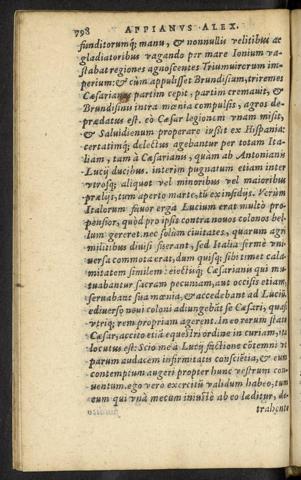 798 APPIANVS ALEX.
funditorumq; manu, & nonnullis velitibus ac
gladiatoribus vagando per mare Ionium va-
stabat regiones agnoscentes Triumuirorum im-
perium: & cùm appulisset Brundisium, triremes
Cæsarianas partim cepit, partim cremauit, &
Brundisinis intra mœnia compulsis, agros de-
prædatus est. eò Cæsar legionem vnam misit,
& Saluidienum properare iussit ex Hispania:
certatimq; delectus agebantur per totam Ita-
liam, tam à Cæsarianis, quàm ab Antonianis
Lucij ducibus. interim pugnatum etiam inter
vtrosq; aliquot vel minoribus vel maioribus
prælijs, tum aperto marte, tū ex insidijs. Verùm
Italorum fauor erga Lucium erat multò pro-
pensior, quòd pro ipsis contra nouos colonos bel-
lum gereret. nec solùm ciuitates, quarum agri
militibus diuisi fuerant, sed Italia fermè vni
uersa commota erat, dum quisq; sibi timet cala-
mitatem similem: eiectisq; Cæsarianis qui mu
tuabantur sacram pecuniam, aut occisis etiam,
seruabant sua mœnia, & accedebant ad Luciū.
ediuerso noui coloni adiungebāt se Cæsari, quasi
vtriq; rem propriam agerent. In eo rerum statu
Cæsar, accito etiā equestri ordine in curiam, ita
locutus est: Scio me à Lucij factione cōtemni vt
parum audacem infirmitatis conscietia, & eun
contemptum augeri propter hunc vestrum con-
uentum. ego verò exercitū validum habeo, tum
eum qui vnà mecum iniustè ab eo læditur, de-
trahente